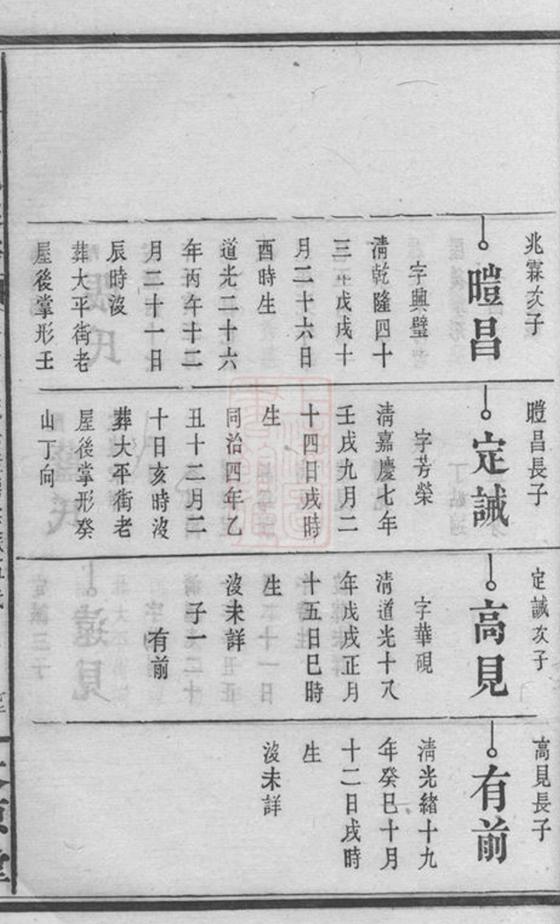 兆霖次子
暟昌
字興璧
清乾隆四十
三年戊戌十
月二十六日
酉時生
道光二十六
年丙午十二
月二十一日
辰時沒
葬大平街老
屋後掌形壬
暟昌長子
定誠
字芳榮
清嘉慶七年
壬戌九月二
十四日戌時
生
同治四年乙
丑十二月二
十日亥時沒
葬大平街老
屋後掌形癸
山丁向
定誠次子
高見
字華硯
清道光十八
年戊戌正月
十五日巳時
生
沒未詳
子一
有前
高見長子
有前
清光緒十九
年癸巳十月
十二日戌時
生
沒未詳